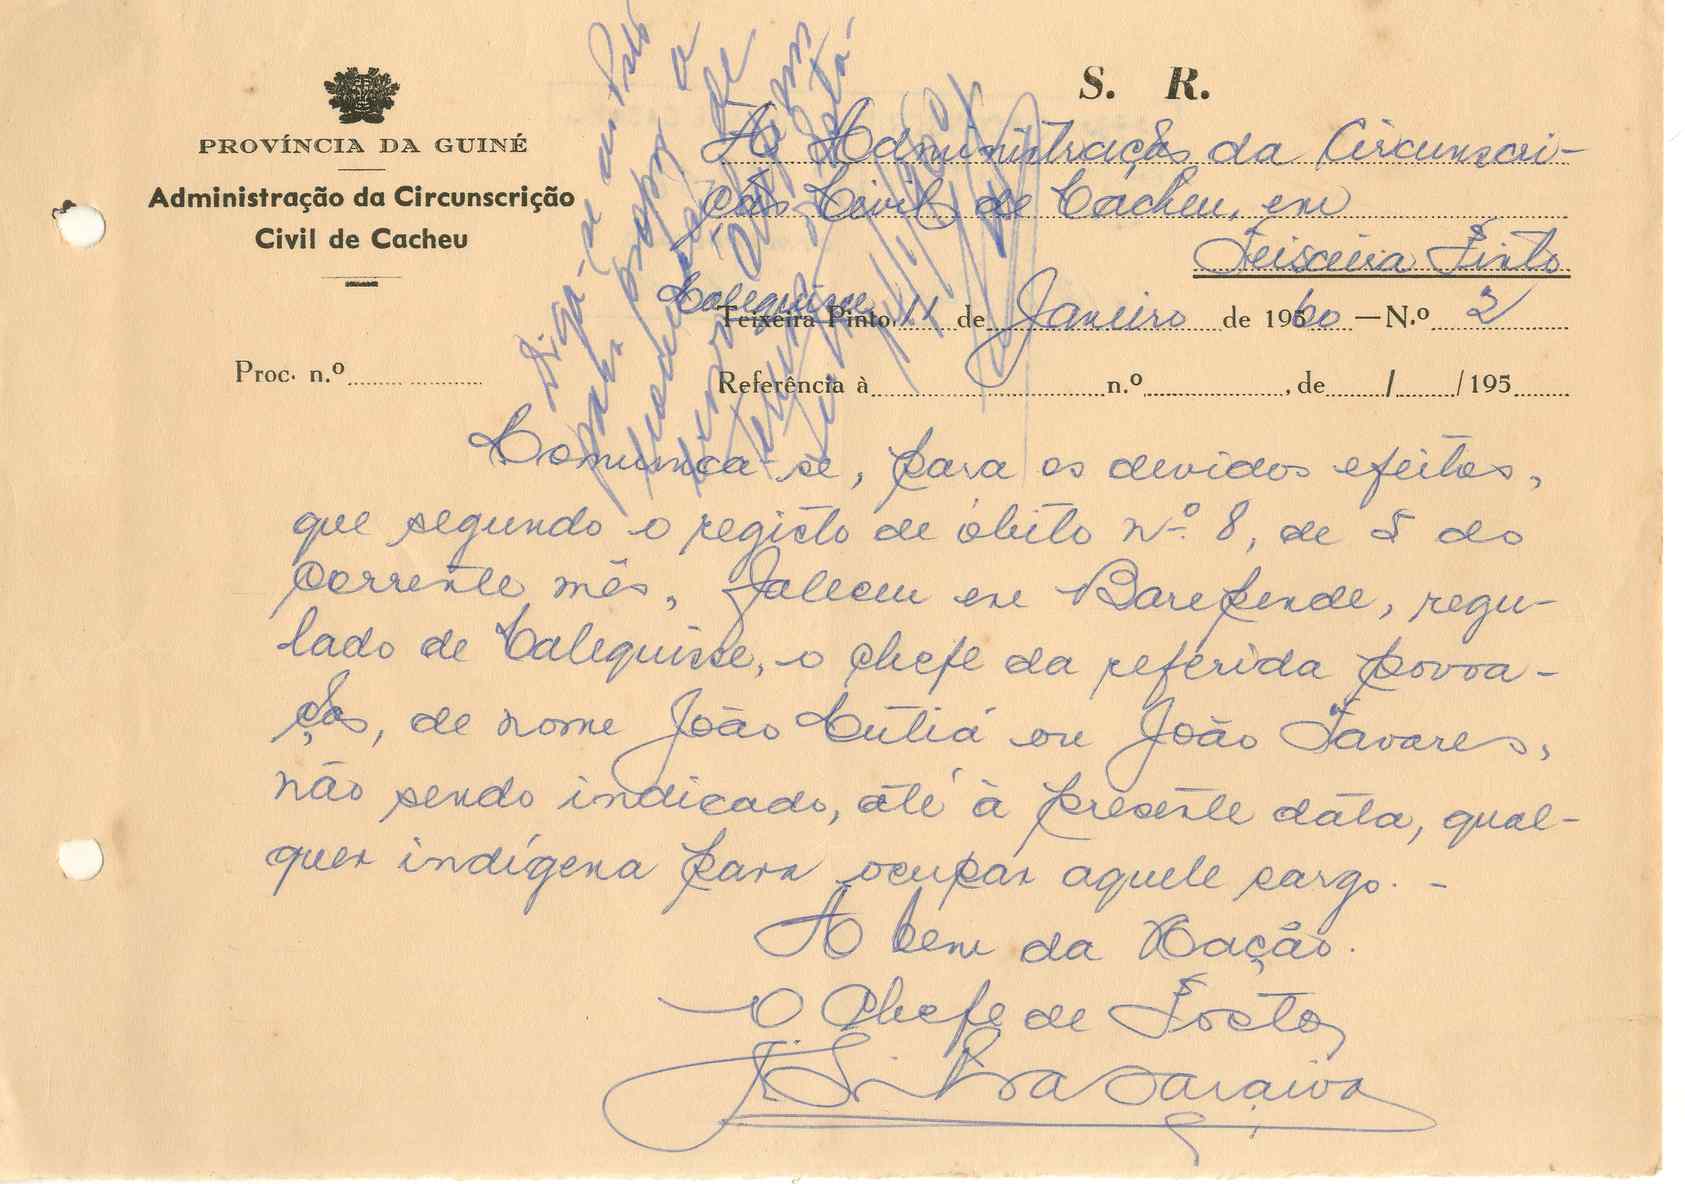 S. R.
PROVÍNCIA DA GUINÉ
Administração da Circunscrição
Civil de Cacheu
À Administração da Circunscri-
ção Civil de Cacheu, em
Teixeira Pinto
Calequisse
Teixeira Pinto 11 de Janeiro de 1960 — N.º 2
Proc. n.º
Referência à n.º , de / /195
Diga-se ao
para propor a
de
Comunica-se, para os devidos efeitos,
que segundo o registo de óbito nº. 8, de 5 do
corrente mês, faleceu em Barepende, regu-
lado de Calequisse, o chefe da referida povoa-
ção, de nome João Cútiá ou João Tavares,
não sendo indicado, até à presente data, qual-
quer indígena para ocupar aquele cargo. -
A bem da Nação.
O Chefe de Posto,
Silva Saraiva